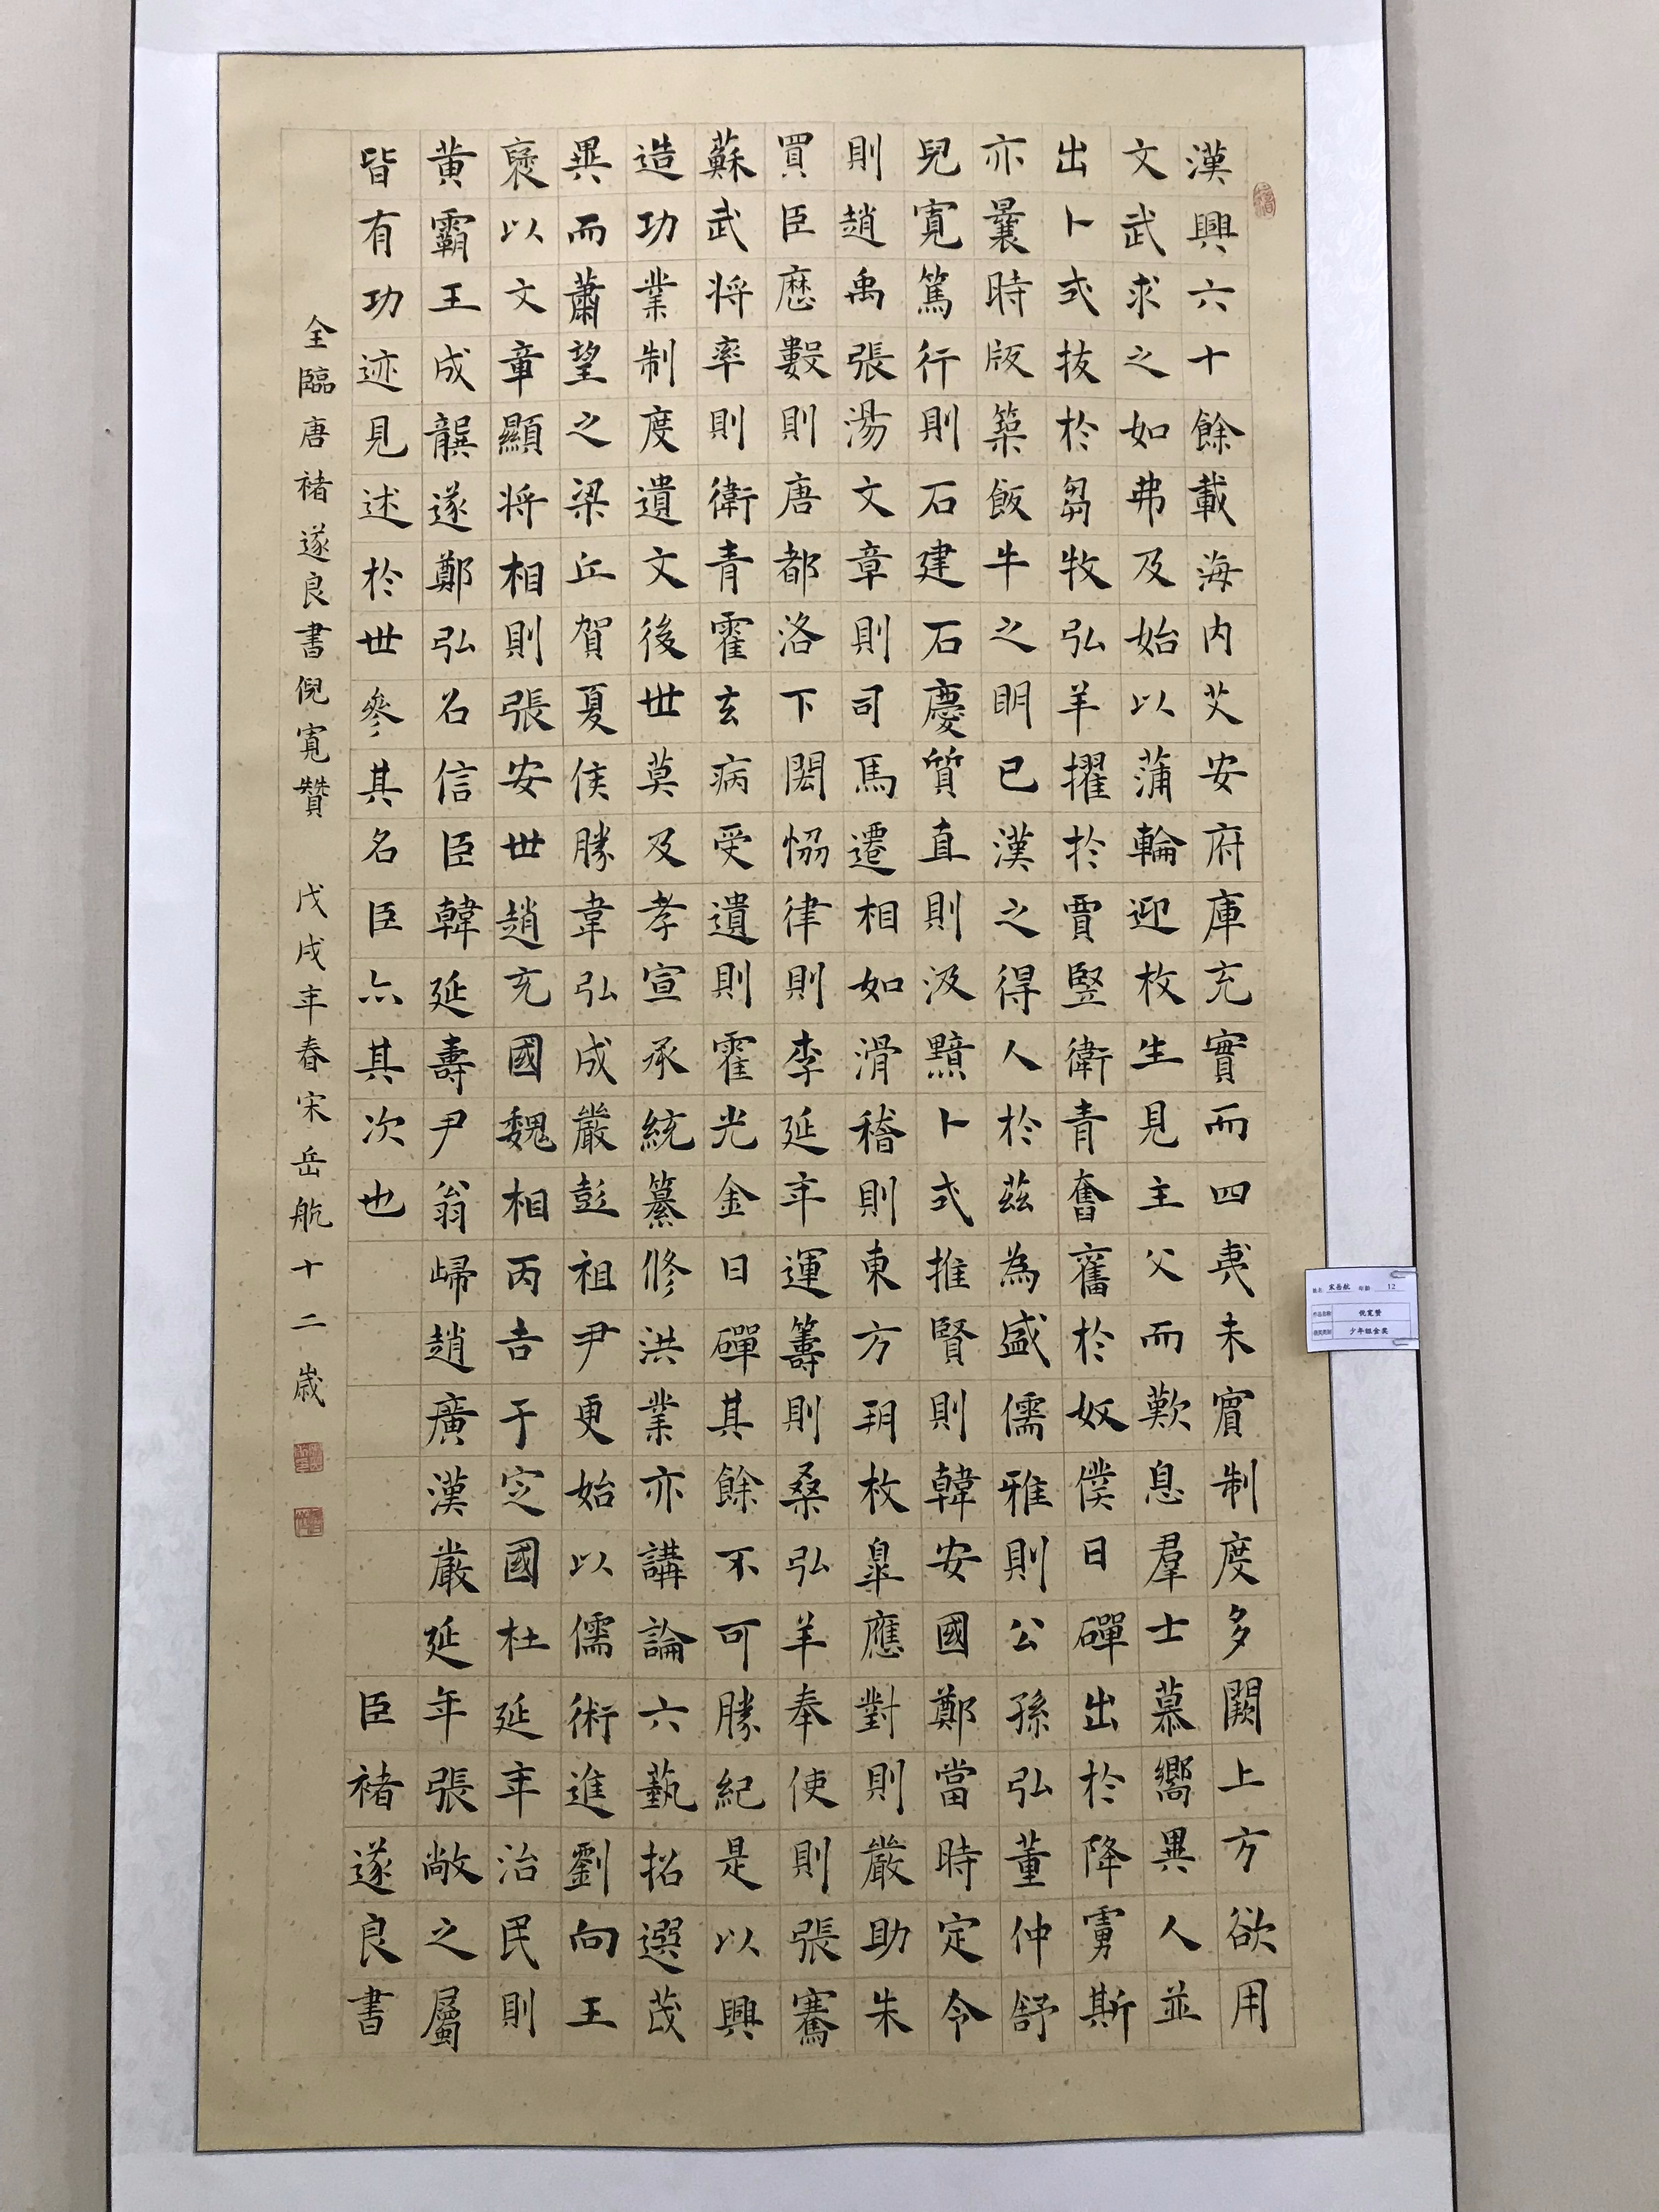 漢興六十餘載海内艾安府庫充實而四夷未賓制度多闕上方欲用
文武求之如弗及始以蒲輪迎枚生見主父而歎息羣士慕嚮異人並
出卜式拔於芻牧弘羊擢於賈豎衛青奮舊於奴僕日磾出於降虜斯
亦曩時版築飯牛之明已漢之得人於茲為盛儒雅則公孫弘董仲舒
兒寬篤行則石建石慶質直則汲黯卜式推賢則韓安國鄭當時定令
則趙禹張湯文章則司馬遷相如滑稽則東方朔枚皋應對則嚴助朱
買臣歷數則唐都洛下閎協律則李延年運籌則桑弘羊奉使則張騫
蘇武将率則衛青霍去病受遺則霍光金日磾其餘不可勝紀是以興
造功業制度遺文後世莫及孝宣承統纂修洪業亦講論六藝招選茂
異而蕭望之梁丘賀夏侯勝韋弘成嚴彭祖尹更始以儒術進劉向王
褒以文章顯将相則張安世趙充國魏相丙吉于定國杜延年治民則
黄霸王成龔遂鄭弘召信臣韓延壽尹翁歸趙廣漢嚴延年張敞之屬
皆有功迹見述於世參其名臣亦其次也 臣褚遂良書
全臨唐褚遂良書倪寬贊 戊戌年春宋岳航十二歲
姓名 宋岳航 年龄 12
作品名称 倪宽赞
获奖类别 少年组金奖